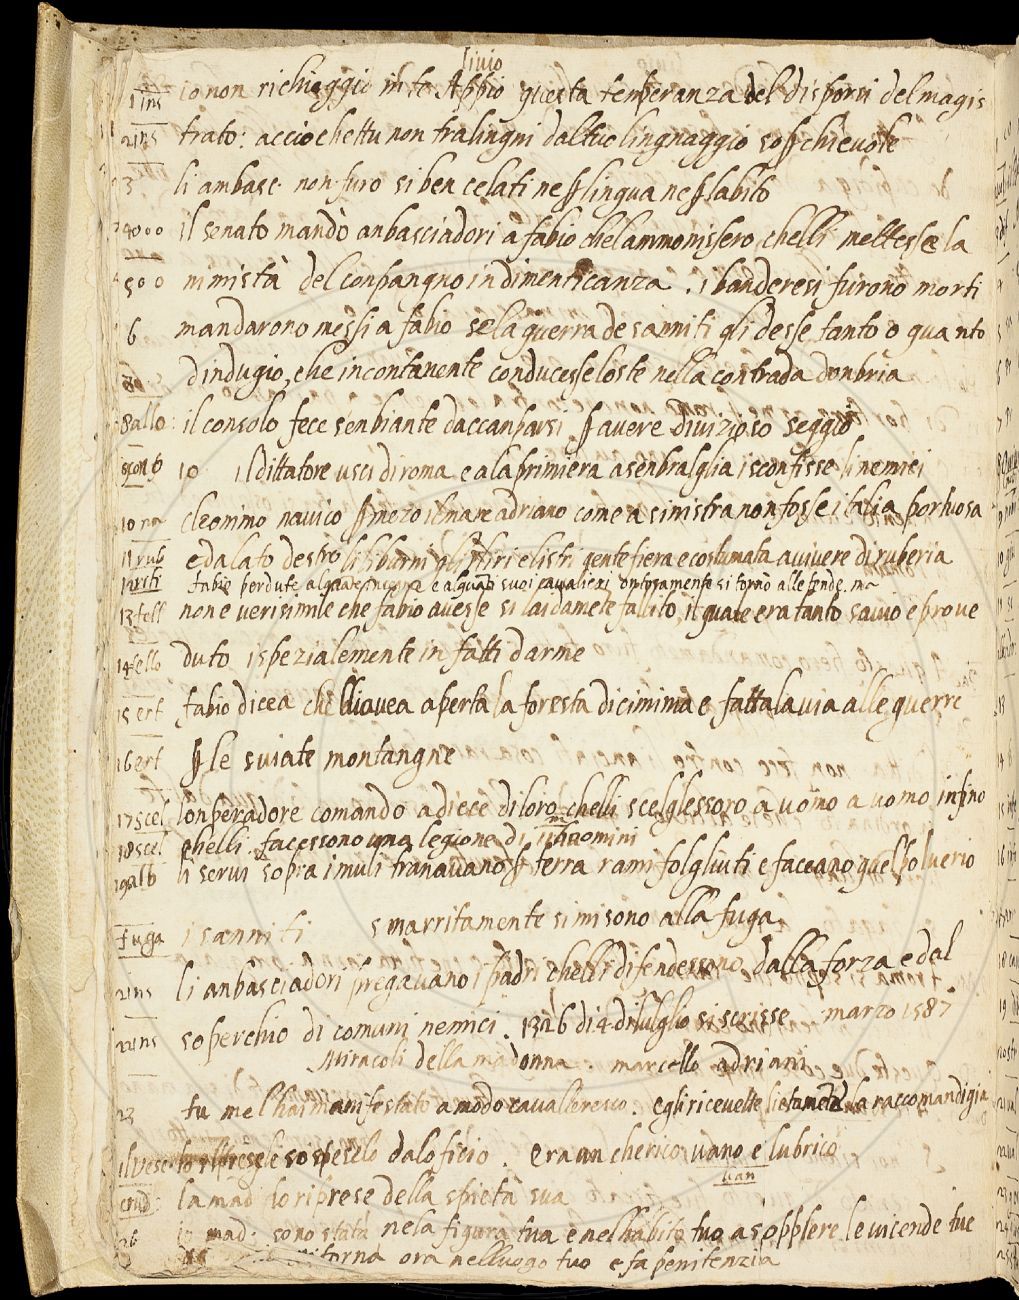 livio
1 ins io non richieggio in te Appio questa temperanza del disporsi del magis
2 ins trato: accio chettu non tralingni dal tuo lingnaggio soschievole
3 li ambasc. non furo si ben celati ne ꝑ lingua ne ꝑ labito
4000 il senato mandò anbasciadori a fabio chelammonissero chelli mettesse la
500 nimistà del conpangno in dimenticanza. i banderesi furono morti
6 mandarono messi a fabio se la guerra de sanniti gli desse tanto o quanto
dindugio, che incontanente conducesse loste nella contrada donbria
8 allo: il consolo fece senbiante daccanparsi ꝑ avere divizioso seggio
sconf 10 il dittatore usci di roma e a la primiera asenbraglia isconfisse li nemici
10 na cleonimo navico ꝑ mezo il mare adriano come a sinistra non fosse italia portuosa
11 rub e da lato destro li liburni gli istri gente fiera e costumata a vivere di ruberia
fabio perdute alquante insegne e alquanti suoi cavalieri ontosamente si tornò alle tende. ma
13 fall non e verisimile che fabio avesse si laidamete fallito, il quale era tanto savio e prove
14 fello duto ispezialemente in fatti darme
15 ert fabio dicea chelli avea aperta la foresta di cimina e fatta la via alle guerre
16 ert ꝑ le sviate montangne
17 scel lonperadore comando a diece di loro chelli sceglessoro a uomo a uomo infino
18 scel chelli facessono una legione di uomini
19 alb li servi sopra i muli tranavano ꝑ terra rami folgliuti e faceano quel polverio
fuga i sanniti smarritamente si misono alla fuga
21 ins li anbasciadori pregavano i padri chelli difendessono dalla forza e dal
22 ins soperchio di comuni nemici. 1326 di 4 di lulglio si scrisse marzo 1587
Miracoli della madonna. marcello adriani
23 tu mel hai manifestato a modo cavalleresco. egli ricevette lietamete la raccomandigia
il vesc lo riprese e sospeselo dal oficio. era un cherico vano e lubrico
van
crud: la mad lo riprese della spietà sua
26 io mad: sono stata nela figura tua e nel habito tuo a sopplere le vicende tue
torna ora nel luogo tuo e fa penitenzia